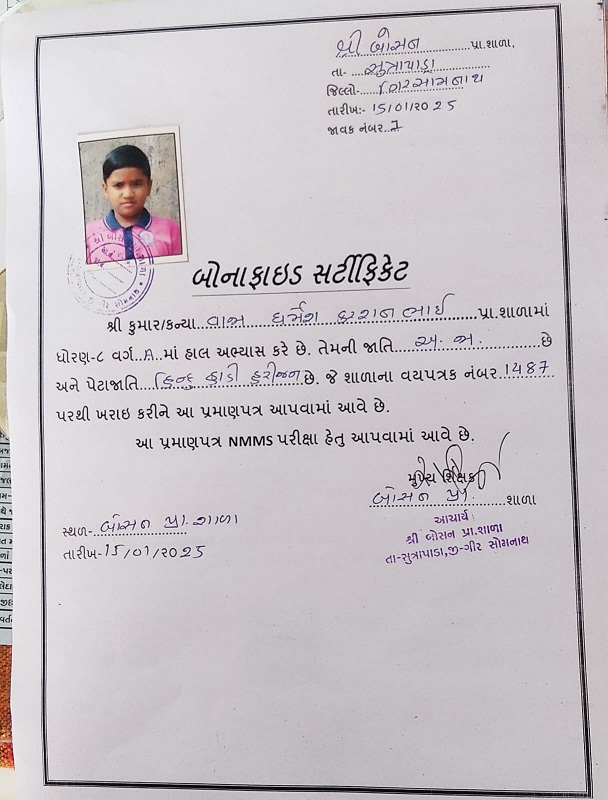 શ્રી બોસન પ્રા.શાળા,
તા- સુત્રાપાડા
જિલ્લો- ગિર સોમનાથ
તારીખ:- 15/01/2025
જાવક નંબર. 7
બોનાફાઇડ સર્ટીફિકેટ
શ્રી કુમાર/કન્યા વાજા ધર્મેશ દરશનભાઈ પ્રા.શાળામાં
ધોરણ-૮ વર્ગ A માં હાલ અભ્યાસ કરે છે. તેમની જાતિ અ. જા. છે
અને પેટાજાતિ હિન્દુ હાડી હરીજન છે. જે શાળાના વયપત્રક નંબર 1487
પરથી ખરાઇ કરીને આ પ્રમાણપત્ર આપવામાં આવે છે.
આ પ્રમાણપત્ર NMMS પરીક્ષા હેતુ આપવામાં આવે છે.
મુખ્ય શિક્ષક
બોસન પ્રા. શાળા
આચાર્ય
શ્રી બોસન પ્રા.શાળા
તા-સુત્રાપાડા,જી-ગીર સોમનાથ
સ્થળ- બોસન પ્રા. શાળા
તારીખ-15/01/2025